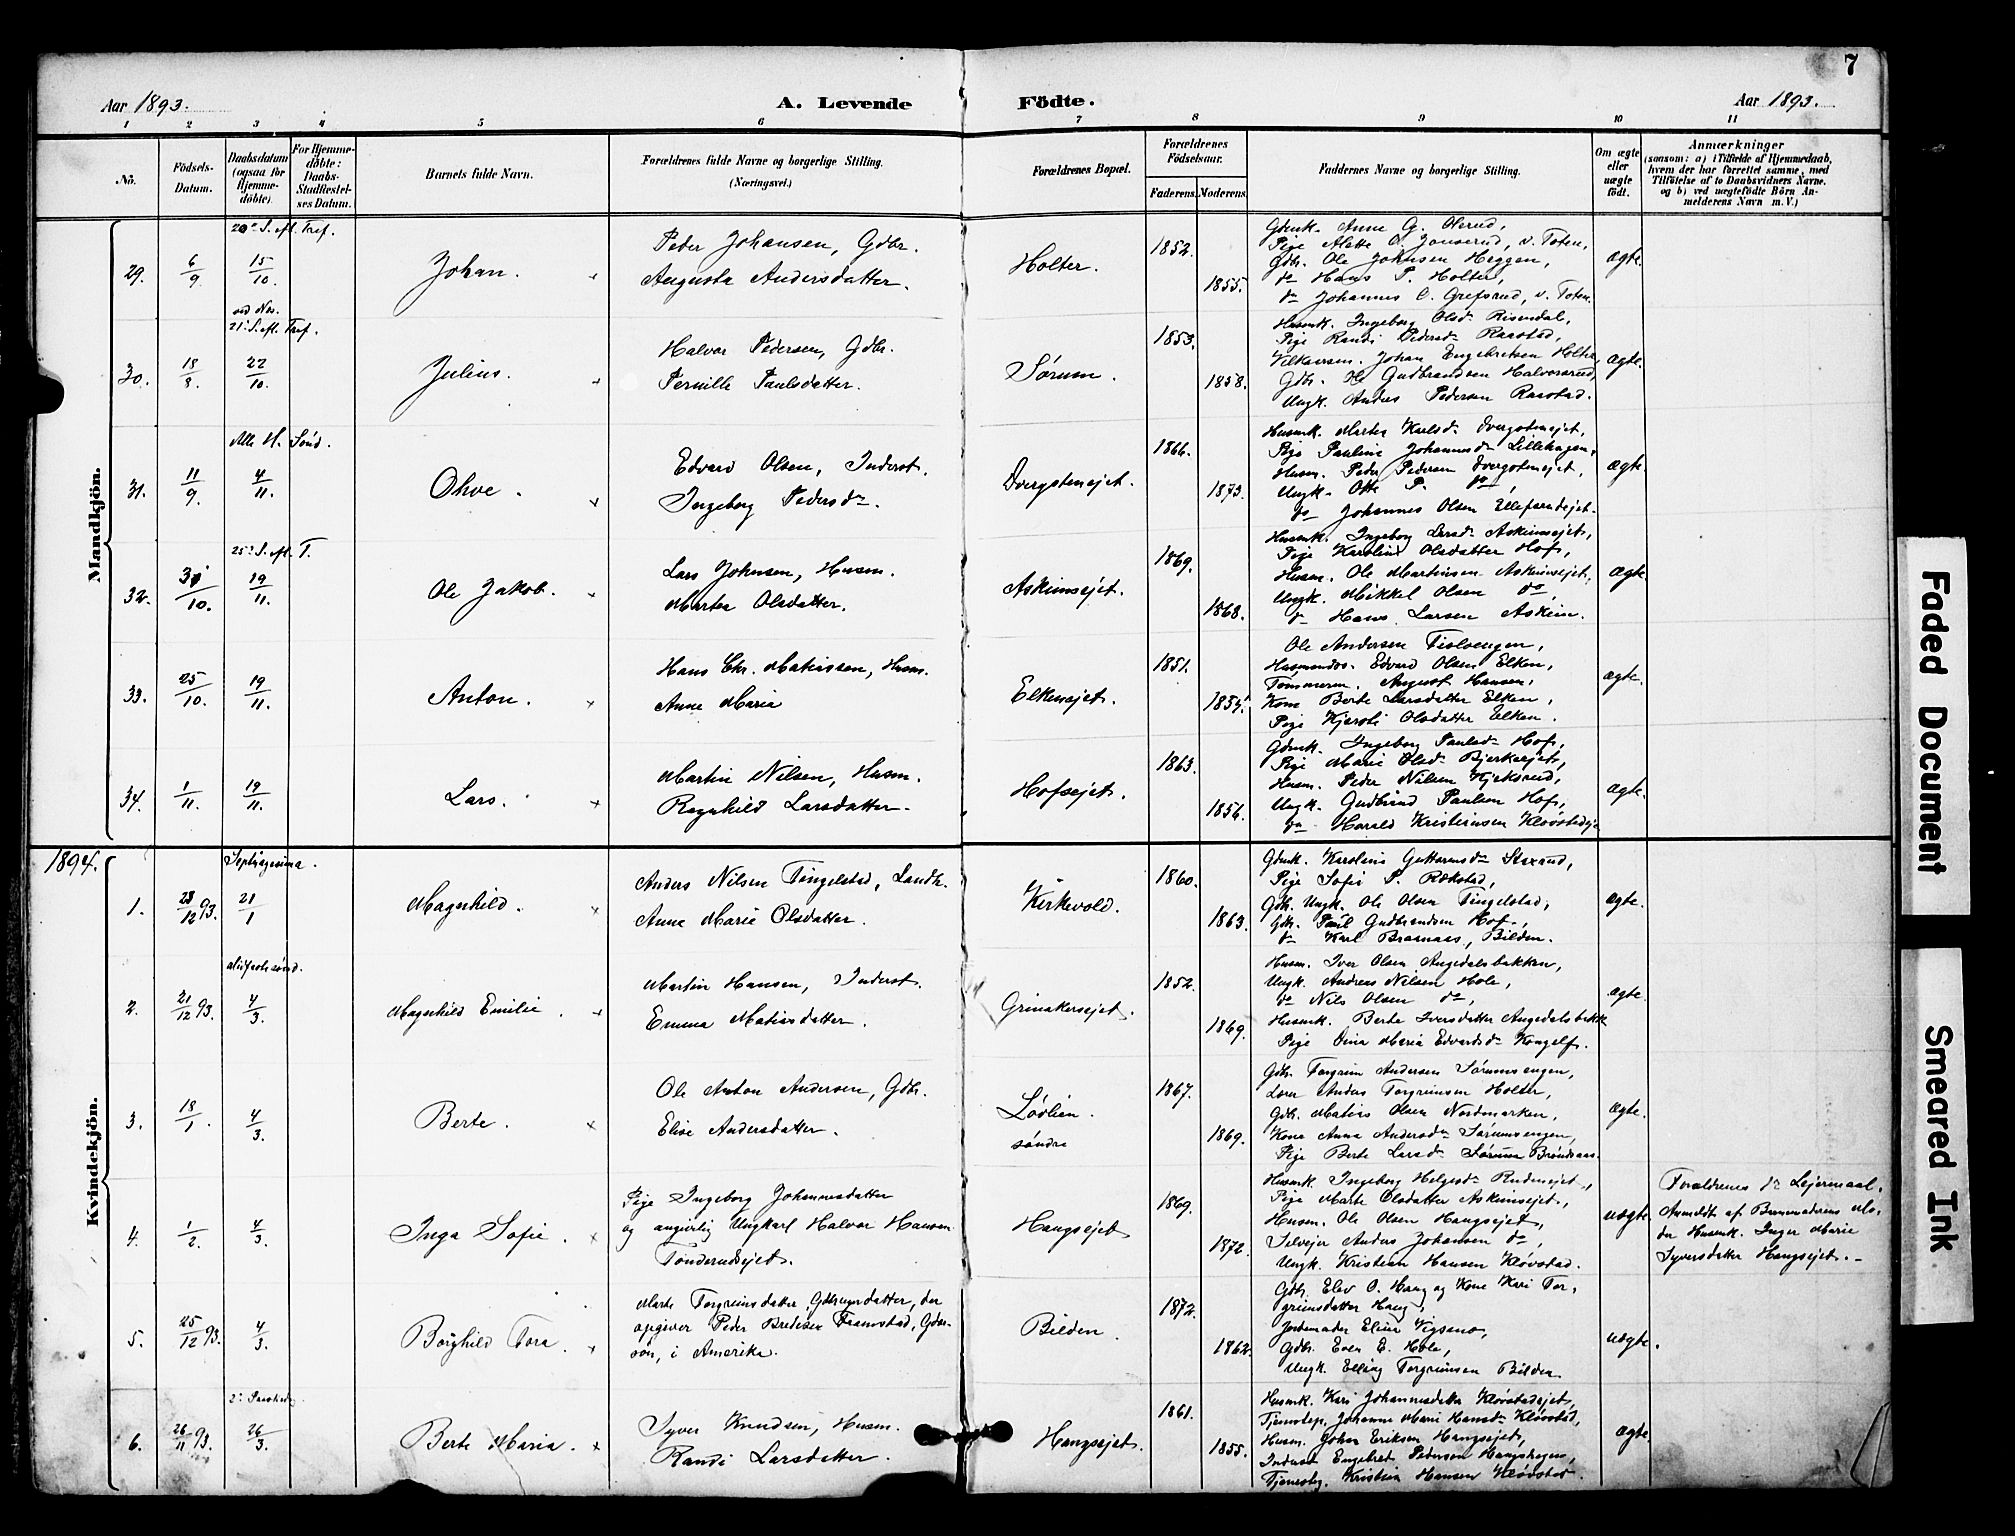 7
Aar 1893.
A. Levende Födte.
Aar 1893.
1 2 3 4 5 6 7 8 9 10 11
No.
Födsels-Datum.
Daabsdatum (ogsaa for Hjemmedöbte).
For Hjemmedöbte: Daabs-Stadfæstelses Datum.
Barnets fulde Navn.
Forældrenes fulde Navne og borgerlige Stilling.
(Næringsvei.)
Forældrenes Bopæl.
Forældrenes Födselsaar.
Faderens. Moderens.
Faddernes Navne og borgerlige Stilling.
Om ægte eller uægte födt.
Anmærkninger
(saasom: a) i Tilfælde af Hjemmedaab, hvem der har forrettet samme, med Tilföielse af to Daabsvidners Navne, og b) ved uægtefödte Börn Anmelderens Navn m. V.)
Mandkjön.
20de S. eft. Tref.
29. 6/9 15/10. Johan.
Peder Johansen, Gdbr.
Augusta Andersdatter.
Holter. 1852. 1855.
Gdmk. Anne G. Olerud,
Pige Alette O. Jonserud, v. Toten,
Gdbr. Ole Johnsen Heggen,
do Hans P. Holter,
do Johannes O. Grefsrud, v. Toten.
ægte.
21. S. eft. Tref.
30. 18/8. 22/10. Julius.
Halvor Pedersen, Gdbr.
Pernille Paulsdatter.
Sørum. 1853. 1858.
Husmk. Ingeborg Olsd. Risendal,
Pige Randi Pedersd. Raastad,
Johan Engebretsen Holter,
Gdbr. Ole Gudbrandsen Halvorsrud,
Ungk. Anders Pedersen Raastad.
ægte.
Alle H. Sönd.
31. 11/9. 4/11. Ohve.
Edvard Olsen, Inderst.
Ingeborg Pedersdr.
Dvergstenejet. 1866. 1873.
Husmk. Marthea Karlsd. Dvergstenejet,
Pige Pauline Johannesd. Lillehagen,
Husm. Peder Pedersen Dvergstenejet,
Ungk. Otto P. do,
do Johannes Olsen Ellefsrudejet.
ægte.
25. S. eft. T.
32. 31/10. 19/11. Ole Jakob.
Lars Johnsen, Husm.
Marthea Olsdatter.
Askimsejet. 1869. 1868.
Husmk. Ingeborg Larsd. Askimsejet,
Pige Karoline Olsdatter Hof,
Husm. Ole Martinsen Askimsejet,
Ungk. Mikkel Olsen do,
do Hans Larsen Askim.
ægte.
33. 25/10. 19/11. Anton.
Hans Chr. Mathissen, Husm.
Anne Maria
Elkensejet. 1851. 1854.
Ole Andersen
Edvard Olsen Elken,
Tømmerm. August Hansen,
Kone Berte Larsdatter Elken,
Pige Kjersti Olsdatter Elken.
ægte.
34. 1/11. 19/11. Lars.
Martin Nilsen, Husm.
Ragnhild Larsdatter.
Hofsejet. 1863. 1856.
Gdmk. Ingeborg Paulsd. Hof,
Pige Marie Olsd. Bjerksejet,
Husm. Peder Nilsen Kjeksrud,
Ungk. Gudbrand Paulsen Hof,
do Harald Kristiansen Kløvstadeje
ægte.
1894.
Kvindekjön.
Septuagesima.
1. 28/12 93. 21/1 Magnhild.
Anders Nilsen Tingelstad, Landh.
Anne Marie Olsdatter.
Kirkevold. 1860. 1863.
Gdmk. Karoline Guttormsd. Staxrud,
Pige Sofie P. Rækstad,
Gdbr. Ungk. Ole Olsen Tingelstad,
Gdbr. Paul Gudbrandsen Hof,
do Karl Braanaas, Bilden.
ægte.
Midfastesönd.
2. 21/12 93. 4/3. Magnhild Emilie.
Martin Hansen, Inderst.
Emma Mathisdatter.
Grinakersejet. 1852. 1869.
Husm. Iver Olsen Augedalsbakken,
Ungk. Andreas Nilsen Hole,
do Nils Olsen do,
Husmk. Berte Iversdatter Augedalsbakk
Pige Dina Maria Edvardsd. Kongelf.
ægte.
3. 18/1. 4/3. Berte.
Ole Anton Andersen, Gdbr.
Elise Andersdatter.
Lövlien söndre 1867. 1869.
Gdbr. Torgrim Andersen Sörumsengen,
Anders Torgrimsen Holter,
Gdbr. Mathias Olsen Nordmarken,
Kone Anna Andersd. Sörumsengen,
Pige Berte Larsd. Sörum Bröndsaas.
ægte.
4. 1/2. 4/3. Inga Sofie.
Pige Ingeborg Johannesdatter
og angivelig Ungkarl Halvor Hansen
Tönderudsejet.
Haugsejet 1869. 1872.
Husmk. Ingeborg Helgesd. Rudsejet,
Pige Marte Olsdatter Askimsejet,
Husm. Ole Olsen Haugsejet,
Selvejer Anders Johansen do,
Ungk. Kristian Hansen Klövstad.
uægte
Forældrenes 1ste Lejermaal.
Anmeldt af Barnmoderens Moder Husmk. Inger Marie Syversdatter Haugsejet.
5. 25/12 93. 4/3. Borghild Tora
Marte Torgrimsdatter, Gdbrugerdatter, der
opgiver Peder Bredesen Framstad, Gdbrsön, i Amerika.
Bilden. 1872. 1862.
Gdbr. Elev O. Haug og Kone Kari Torgrimsdatter Haug,
Jordemoder Eline Vigsnes,
Gdbr. Even E. Hole,
Ungk. Elling Torgrimsen Bilden
uægte.
2. Paaskedag
6. 26/11 93. 26/3. Berte Maria.
Syver Knudsen, Husm.
Randi Larsdatter.
Haugsejet. 1861. 1855.
Husmk. Kari Johannesdatter Klövstadejet,
Tjenestep. Johanne Marie Hansd. Klövstad,
Husm. Johan Eriksen Haugsejet,
Inderst Engebret Pedersen Haugshagen,
Tjenestog. Kristian Hansen Klövstad.
ægte.
Faded Document
Smeared Ink